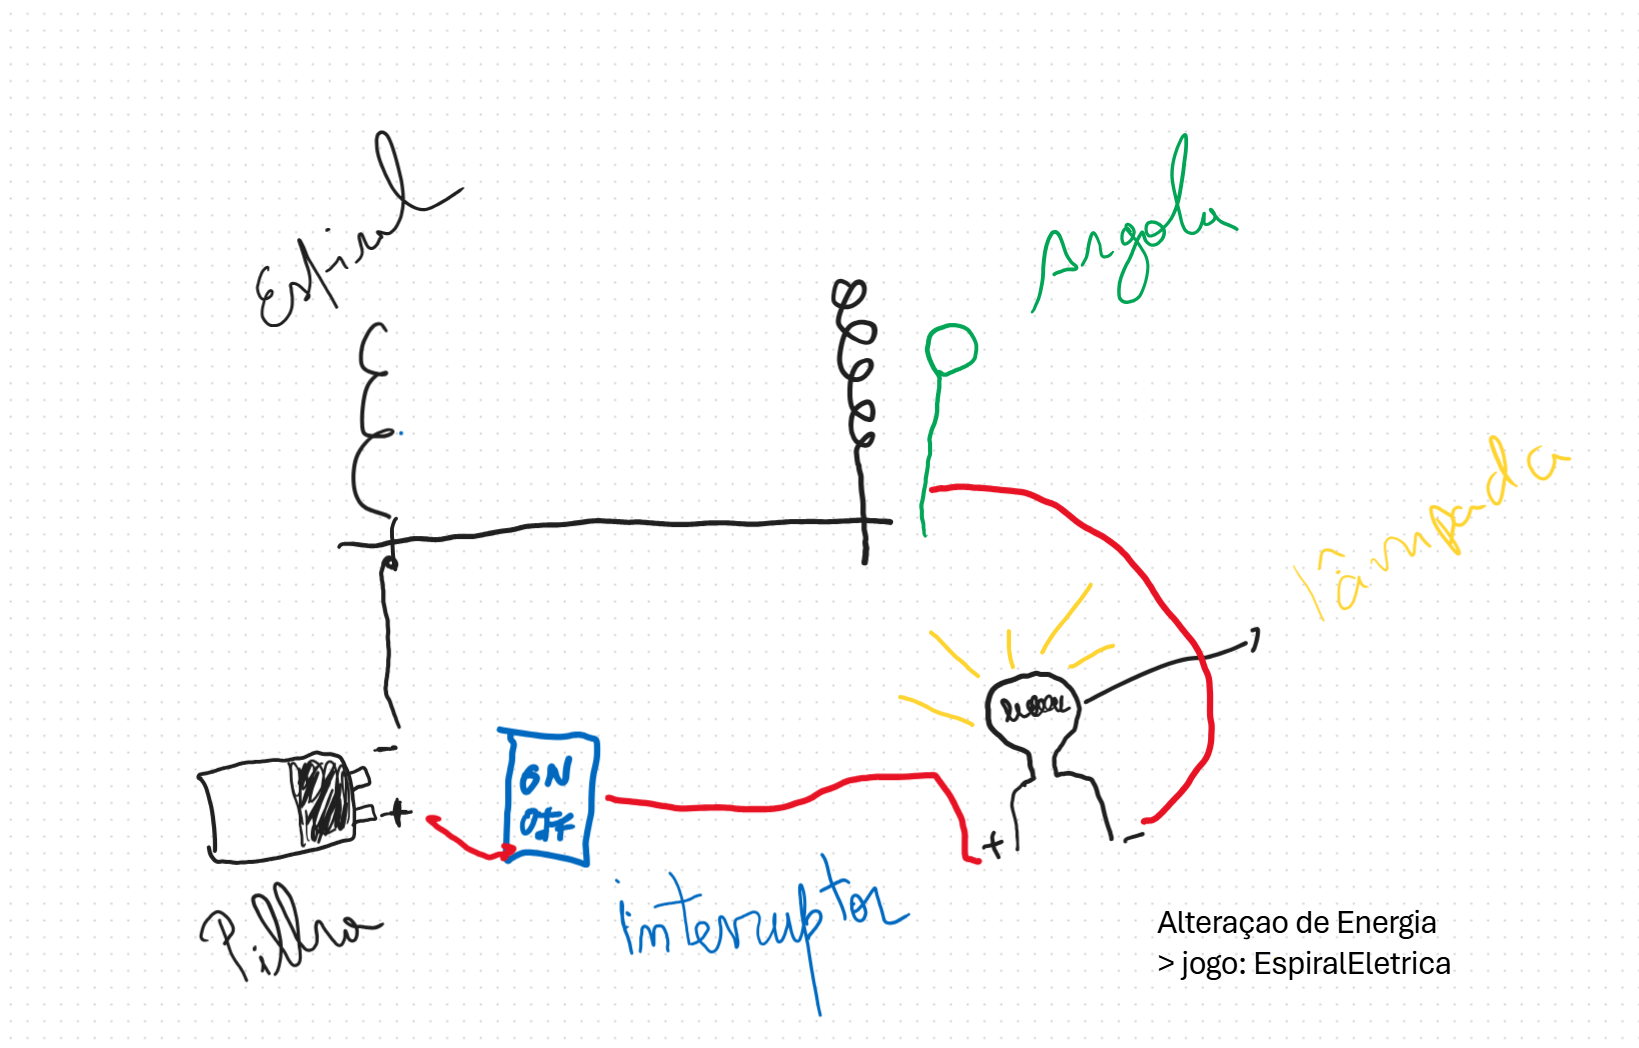 Espiral
Argola
lâmpada
ON
OFF
-
+
+
-
Pilha
interruptor
Alteraçao de Energia
> jogo: EspiralEletrica